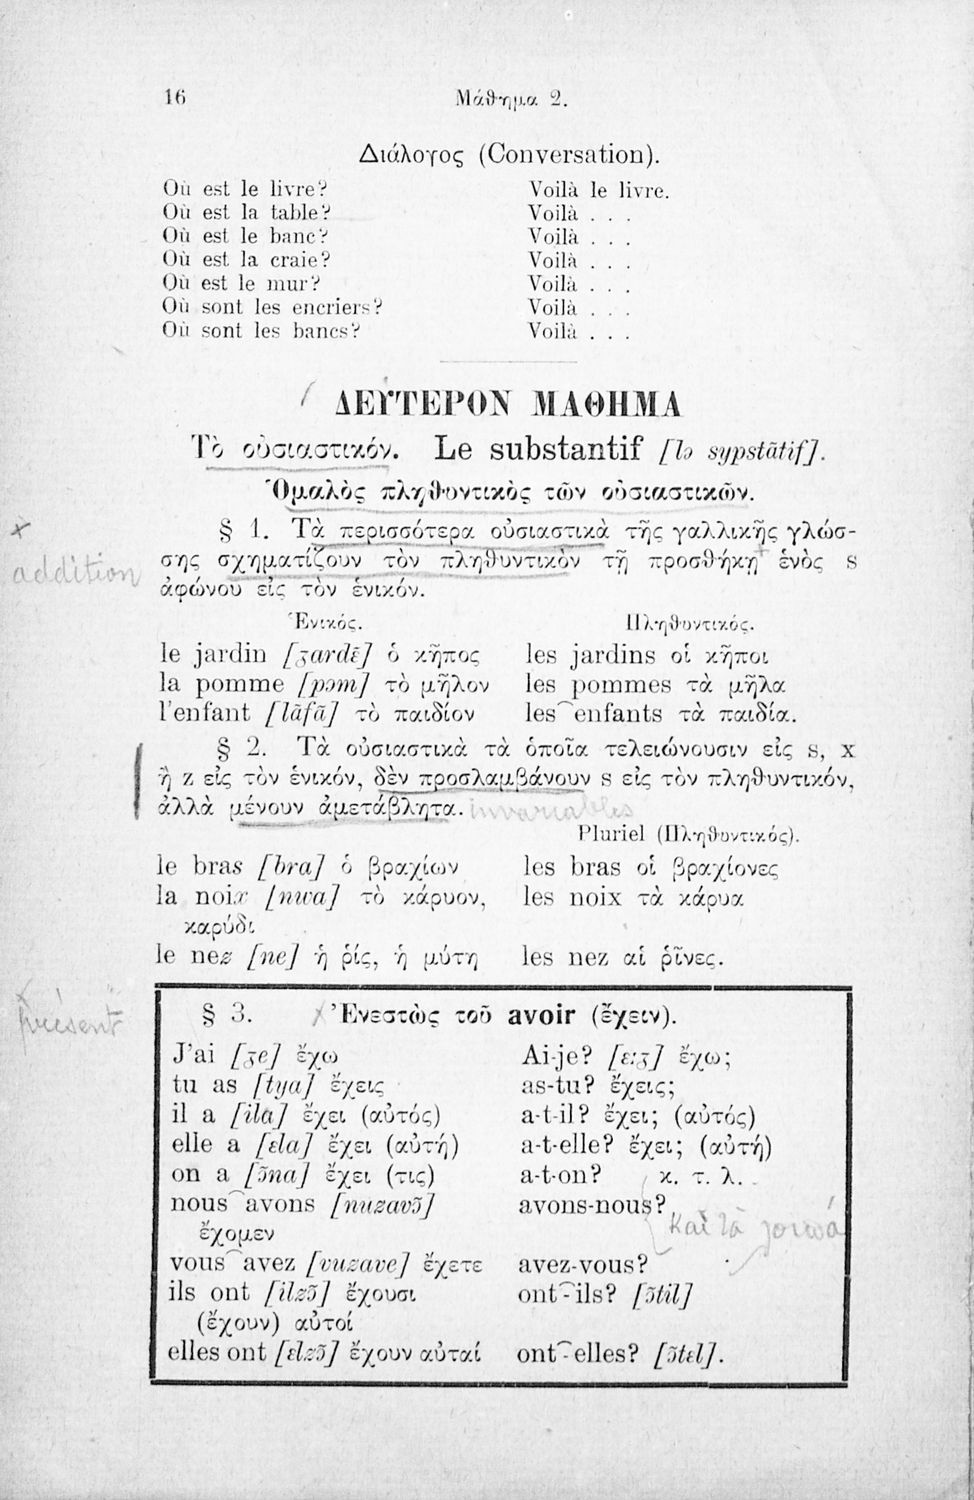 16 Μάθημα 2.
Διάλογος (Conversation).
Où est le livre? Voilà le livre.
Où est la table? Voilà . . .
Où est le banc? Voilà . . .
Où est la craie? Voilà . . .
Où est le mur? Voilà . . .
Où sont les encriers? Voilà . . .
Où sont les bancs? Voilà . . .
ΔΕΥΤΕΡΟΝ ΜΑΘΗΜΑ
Τὸ οὐσιαστικόν. Le substantif [lə sypstãtif].
Ὁμαλὸς πληθυντικὸς τῶν οὐσιαστικῶν.
§ 1. Τὰ περισσότερα οὐσιαστικὰ τῆς γαλλικῆς γλώσ-
σης σχηματίζουν τὸν πληθυντικὸν τῇ προσθήκῃ ἑνὸς s
addition
ἀφώνου εἰς τὸν ἑνικόν.
Ἑνικός. Πληθυντικός.
le jardin [ʒardɛ̃] ὁ κῆπος les jardins οἱ κῆποι
la pomme [pɔm] τὸ μῆλον les pommes τὰ μῆλα
l'enfant [lãfã] τὸ παιδίον les‿enfants τὰ παιδία.
§ 2. Τὰ οὐσιαστικὰ τὰ ὁποῖα τελειώνουσιν εἰς s, x
ἢ z εἰς τὸν ἑνικόν, δὲν προσλαμβάνουν s εἰς τὸν πληθυντικόν,
ἀλλὰ μένουν ἀμετάβλητα. invariables
Pluriel (Πληθυντικός).
le bras [bra] ὁ βραχίων les bras οἱ βραχίονες
la noix [nwa] τὸ κάρυον, les noix τὰ κάρυα
καρύδι
le nez [ne] ἡ ῥίς, ἡ μύτη les nez αἱ ῥῖνες.
présent
§ 3. Ἐνεστὼς τοῦ avoir (ἔχειν).
J'ai [ʒe] ἔχω Ai-je? [ɛːʒ] ἔχω;
tu as [tya] ἔχεις as-tu? ἔχεις;
il a [ila] ἔχει (αὐτός) a-t-il? ἔχει; (αὐτός)
elle a [ɛla] ἔχει (αὐτή) a-t-elle? ἔχει; (αὐτή)
on a [ɔ̃na] ἔχει (τις) a-t-on? κ. τ. λ.
nous‿avons [nuzavɔ̃] avons-nous?
ἔχομεν
vous‿avez [vuzave] ἔχετε avez-vous?
ils ont [ilzɔ̃] ἔχουσι ont‿-ils? [ɔ̃til]
(ἔχουν) αὐτοί
elles ont [ɛlzɔ̃] ἔχουν αὐταί ont‿-elles? [ɔ̃tɛl].